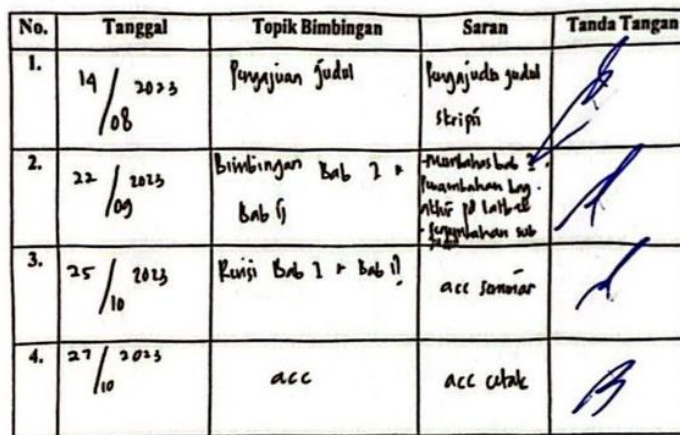 No. Tanggal Topik Bimbingan Saran Tanda Tangan
1. 14/08 2023 Pengajuan judul Pengajuan judul
skripsi
2. 22/09 2023 Bimbingan Bab I + - Membahas bab
Bab II Penambahan
akhir pd latbel
- penambahan sub
3. 25/10 2023 Revisi Bab I + Bab II acc seminar
4. 27/10 2023 acc acc cetak